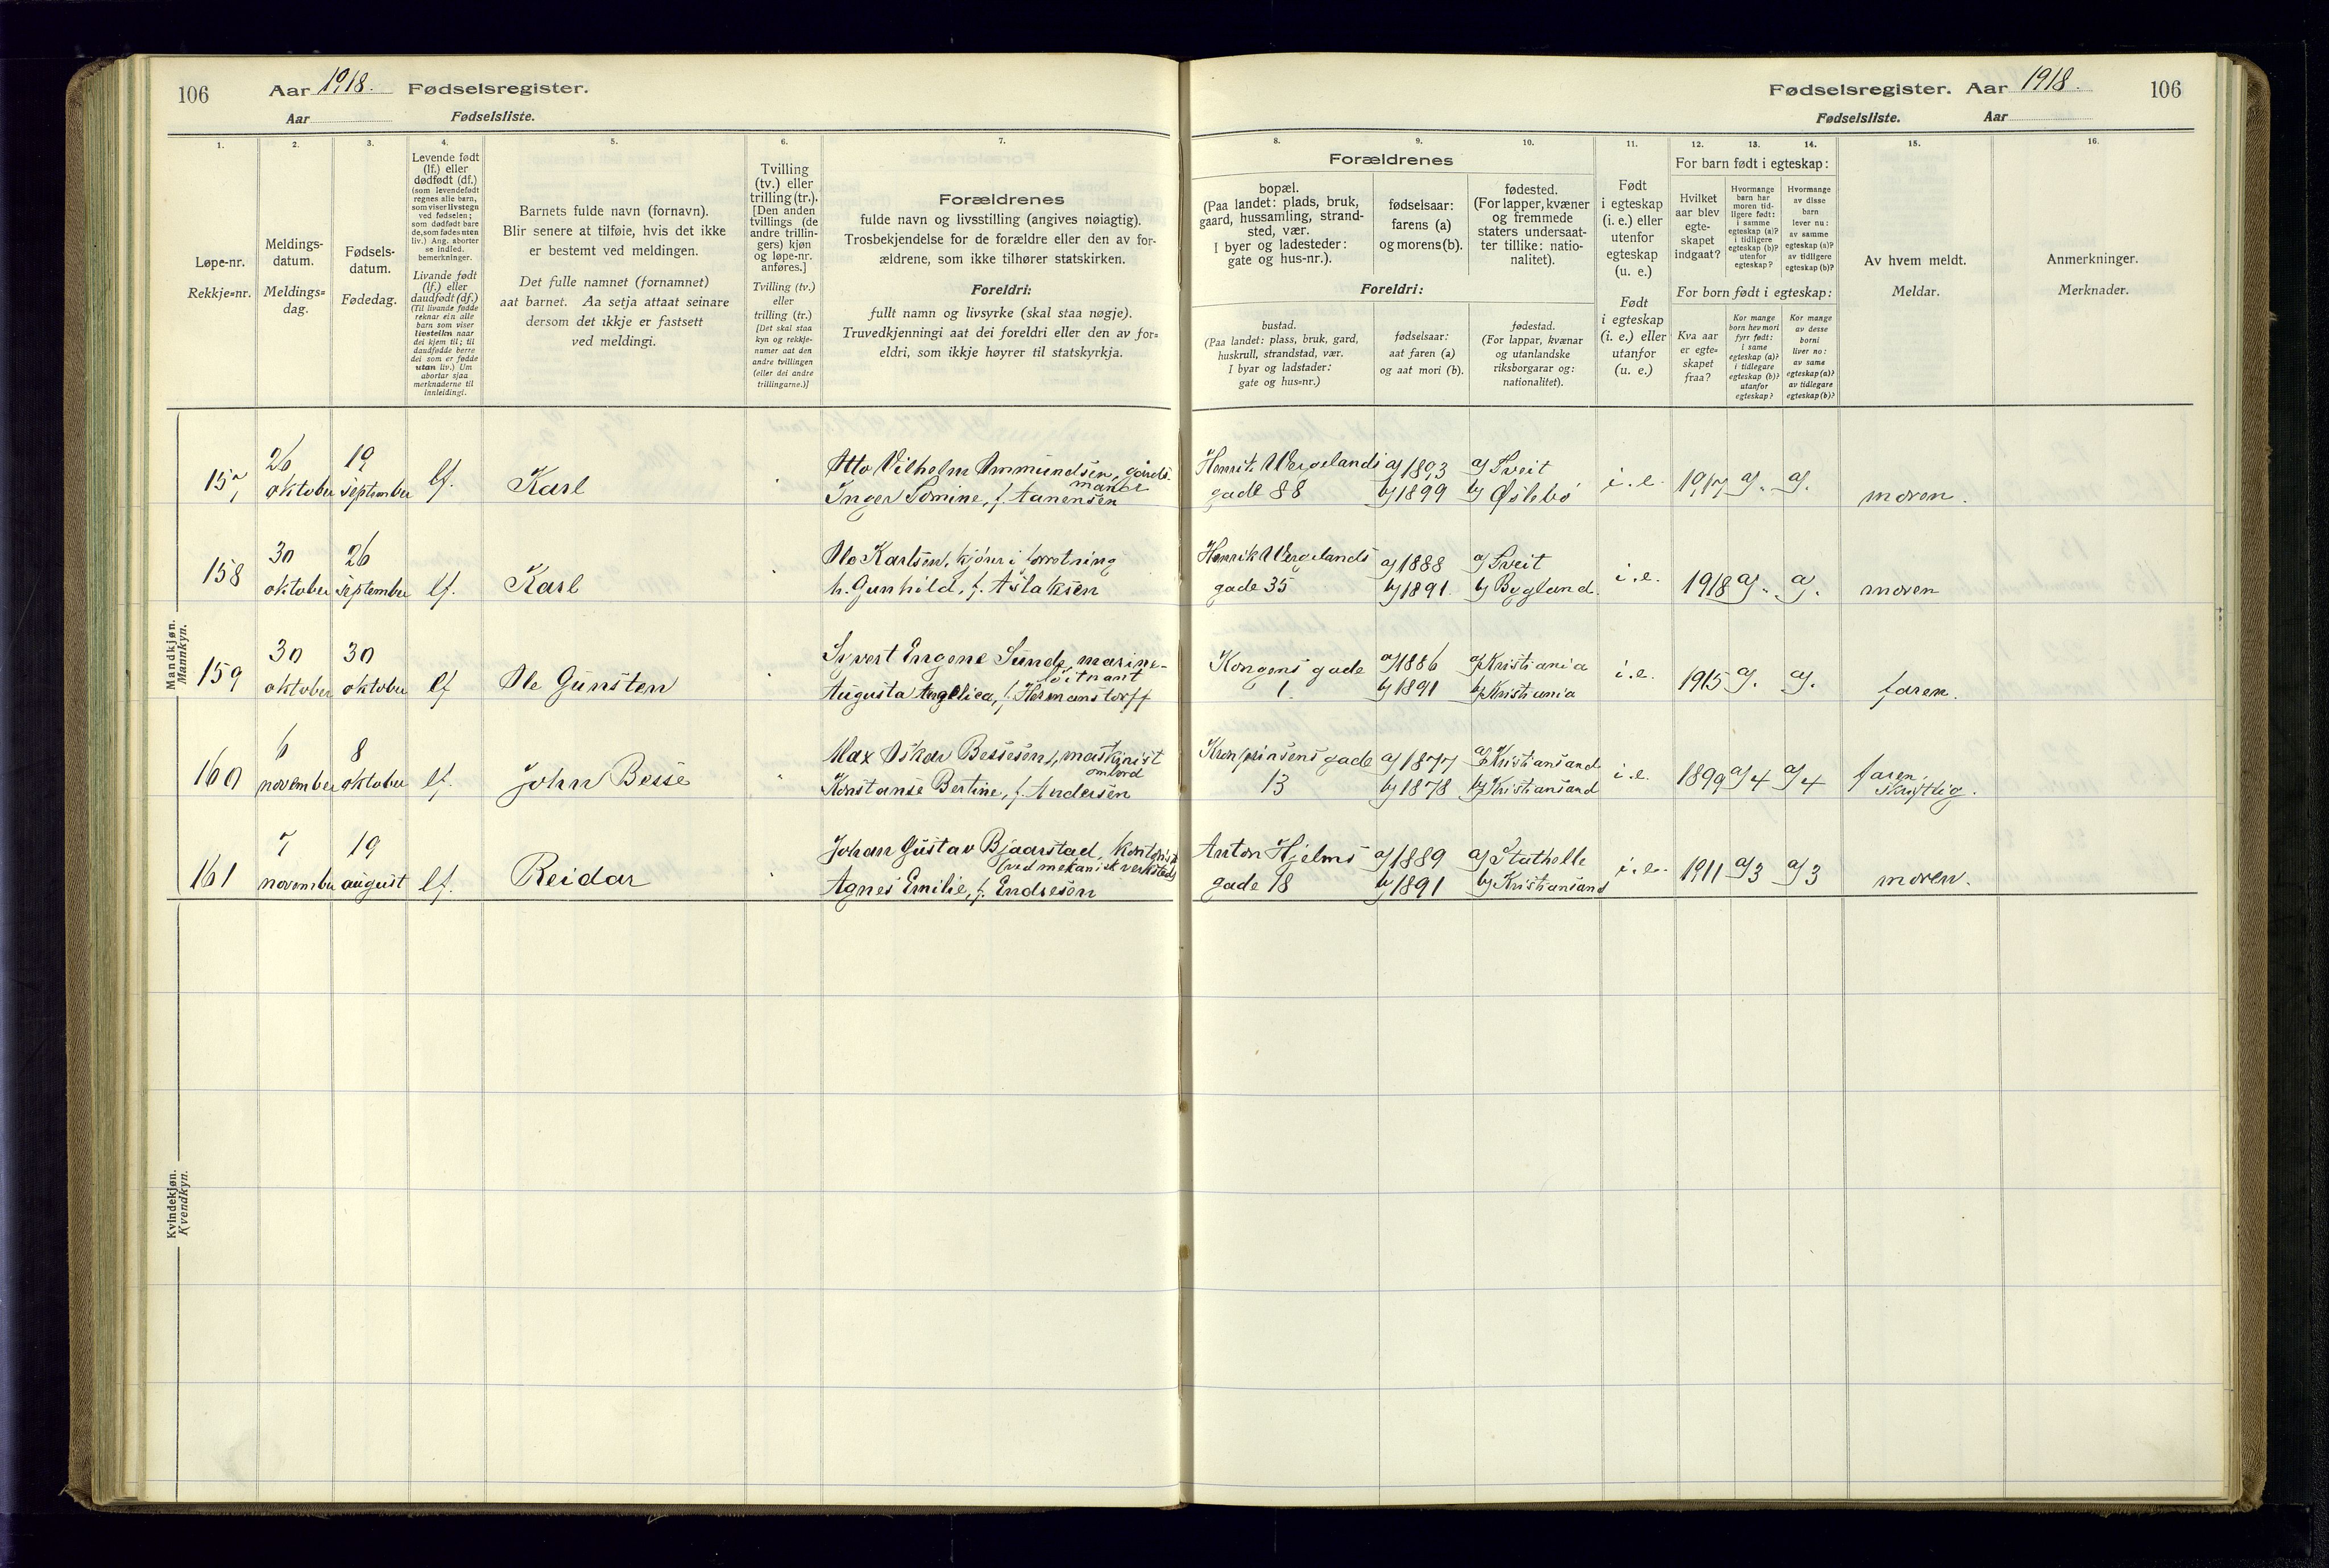 106 Aar 1918. Fødselsregister.
Aar Fødselsliste.
Fødselsregister. Aar 1918. 106
Fødselsliste. Aar
1.
Løpe-nr.
Rekkje=nr.
2.
Meldings-
datum.
Meldings=
dag.
3.
Fødsels-
datum.
Fødedag.
4.
Levende født
(lf.) eller
dødfødt (df.)
(som levendefødt
regnes alle barn,
som viser livstegn
ved fødselen;
som dødfødt bare
de, som fødes uten
liv.) Ang. aborter
se indled.
bemerkninger.
Livande født
(lf.) eller
daudfødt (df.)
(Til livande fødde
reknar ein alle
barn som viser
livsteikn naar
dei kjem til; til
daudfødde berre
dei som er fødde
utan liv.) Um
abortar sjaa
merknaderne til
innleidingi.
5.
Barnets fulde navn (fornavn).
Blir senere at tilføie, hvis det ikke
er bestemt ved meldingen.
Det fulle namnet (fornamnet)
aat barnet. Aa setja attaat seinare
dersom det ikkje er fastsett
ved meldingi.
6.
Tvilling
(tv.) eller
trilling (tr.).
[Den anden
tvillings (de
andre trillin-
gers) kjøn
og løpe-nr.
anføres.]
Tvilling (tv.)
eller
trilling (tr.)
[Det skal staa
kyn og rekkje-
numer aat den
andre tvillingen
(eller dei andre
trillingarne.)]
7.
Forældrenes
fulde navn og livsstilling (angives nøiagtig).
Trosbekjendelse for de forældre eller den av for-
ældrene, som ikke tilhører statskirken.
Foreldri:
fullt namn og livsyrke (skal staa nøgje).
Truvedkjenningi aat dei foreldri eller den av for=
eldri, som ikkje høyrer til statskyrkja.
Forældrenes
8.
bopæl.
(Paa landet: plads, bruk,
gaard, hussamling, strand-
sted, vær.
I byer og ladesteder:
gate og hus-nr.).
9.
fødselsaar:
farens (a)
og morens (b).
10.
fødested.
(For lapper, kvæner
og fremmede
staters undersaat-
ter tillike: natio-
nalitet).
Foreldri:
bustad.
(Paa landet: plass, bruk, gard,
huskrull, strandstad, vær.
I byar og ladstader:
gate og hus=nr.)
fødselsaar:
aat faren (a)
og aat mori (b).
fødestad.
(For lappar, kvænar
og utanlandske
riksborgarar og:
nationalitet).
11.
Født
i egteskap
(i. e.) eller
utenfor
egteskap
(u. e.)
Født
i egteskap
(i. e.) eller
utanfor
(u. e.)
12. 13. 14.
For barn født i egteskap:
Hvilket
aar blev
egte-
skapet
indgaat?
Hvormange
barn har
moren tid-
ligere født:
i samme
egteskap (a)?
i tidligere
egteskap (b)?
utenfor
egteskap?
Hvormange
av disse
barn
lever nu:
av samme
egteskap (a)?
av tidligere
egteskap (b)?
For born født i egteskap:
Kva aar
er egte=
skapet
fraa?
Kor mange
born hev mori
fyrr født:
i same
egteskap (a)?
i tidlegare
egteskap (b)?
utanfor
egteskap?
Kor mange
av desse
borni
liver no:
av same
egteskap (a)?
av tidlegare
egteskap (b)?
15.
Av hvem meldt.
Meldar.
16.
Anmerkninger.
Merknader.
Mandkjøn.
Mannkyn.
157 26 oktober 19 september lf. Karl
Otto Vilhelm Ommundsen, gårds-
mand
Inger Tomine, f. Aanensen
Henrik Wergelands
gade 88
a) 1893 a) Tveit
b) 1899 b) Øslebö
i. e. 1917 a). a). moren.
158 30 oktober 26 september lf. Karl
Olo Karlsen, kjører i forretning
h. Gunhild, f. Aslaksen
Henrik Wergelands
gade 35
a) 1888 a) Tveit
b) 1891 b) Bygland.
i. e. 1918 a). a). moren
159 30 oktober 30 oktober lf Ole Gunsten
Syvert Eugene Sunde, marine-
löitnant
Augusta Angelica, f. Hermanstorff
Kongens gade
1.
a) 1886 a) Kristiania
b) 1891 b) Kristiania
i. e. 1915 a). a). faren.
160 6 november 8 oktober lf. John Besse
Max Oskar Bessesen, maskinist
ombord
Konstanse Bertine, f. Andersen
Kronprinsens gade
13
a) 1877 a) Kristiansand
b) 1878 b) Kristiansand
i. e. 1899 a) 4 a) 4 faren,
skriftlig.
161 7 november 19 august lf. Reidar
Johan Gustav Bjaarstad, kontorist
(ved mekanisk verksted)
Agnes Emilie, f. Endresen
Anton Hjelms
gade 18
a) 1889 a) Stathelle
b) 1891 b) Kristiansand
i. e. 1911 a) 3 a) 3 moren.
Kvindekjøn.
Kvendkyn.